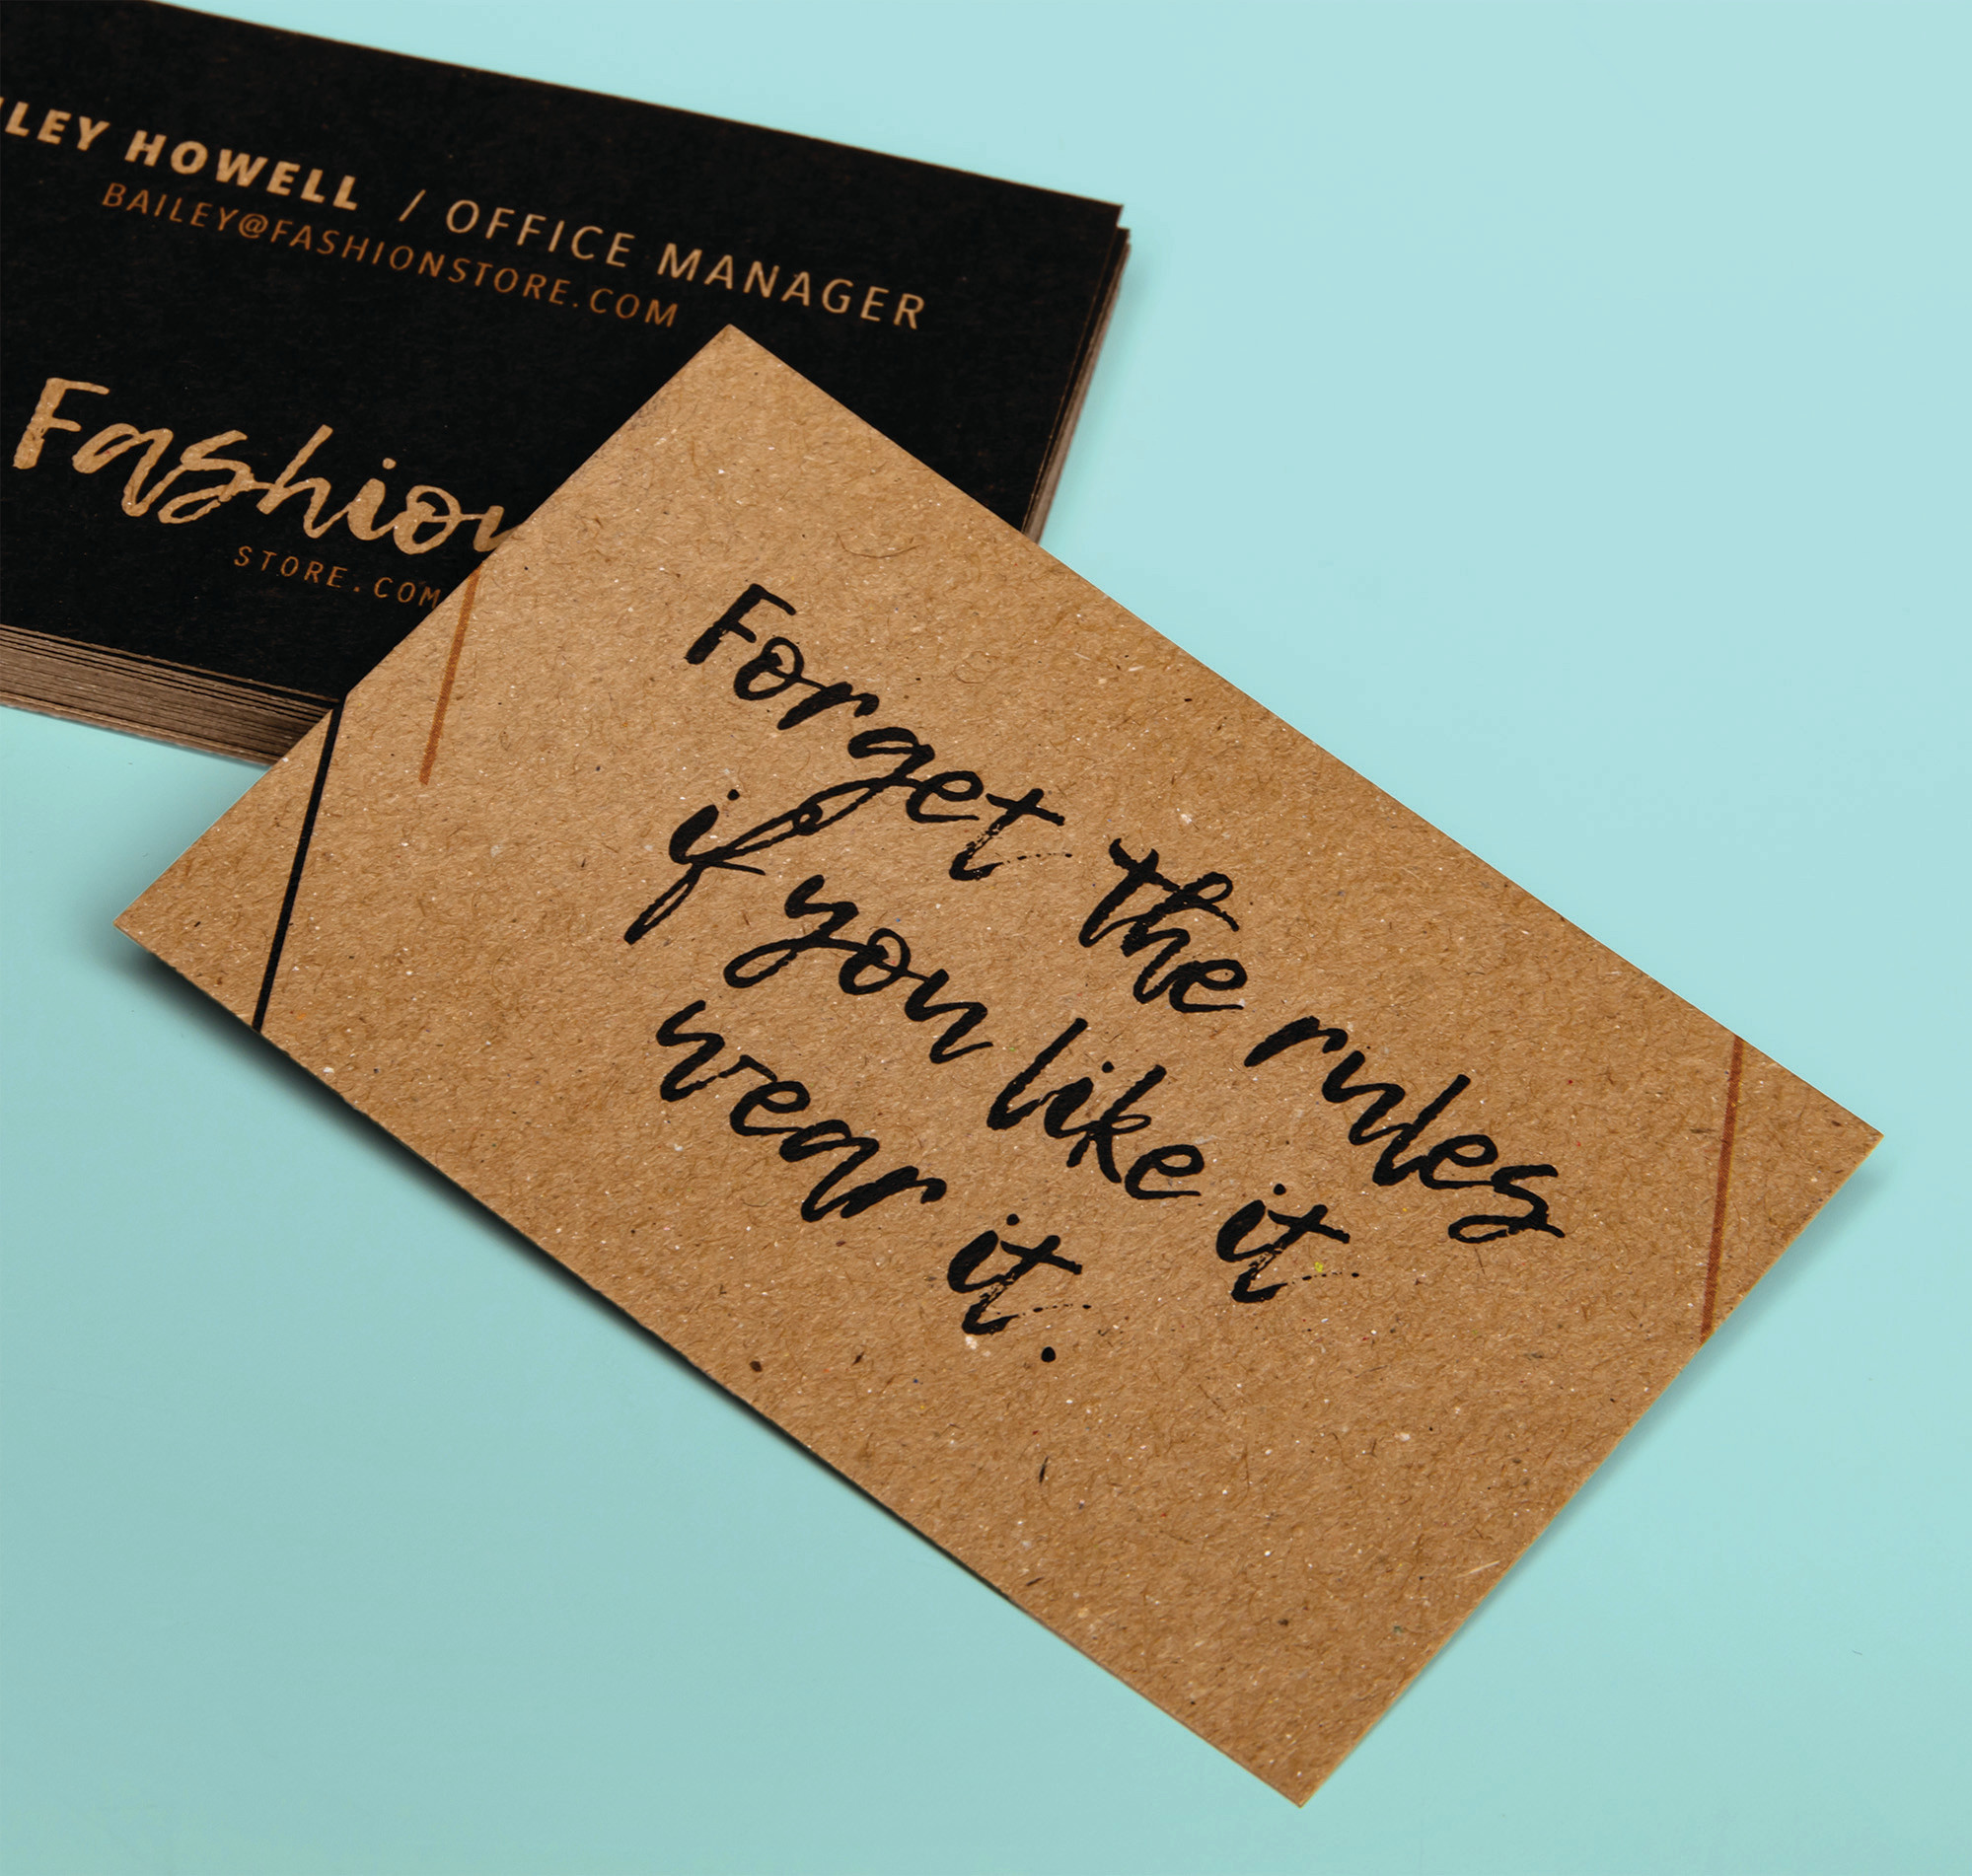 ILEY HOWELL / OFFICE MANAGER
BAILEY@FASHIONSTORE.COM
Fashion
STORE.COM
Forget the rules
if you like it
wear it.